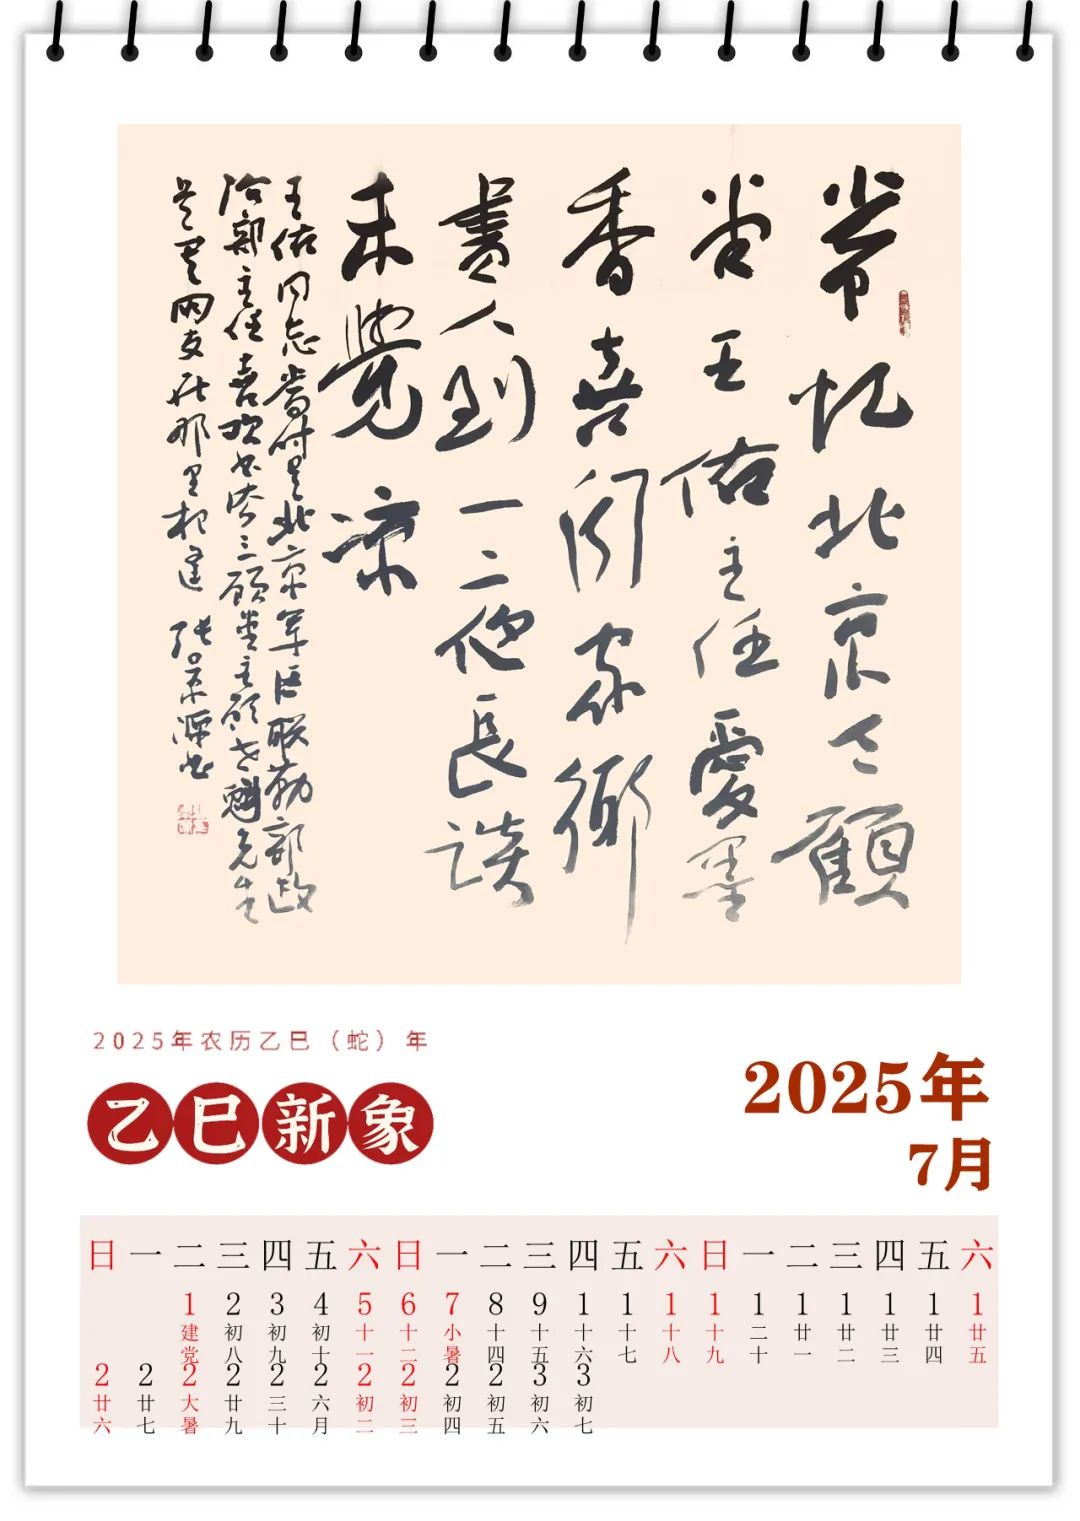 常忆北京三顾
堂王佑主任爱墨
香喜闻家乡
书人到一二他长谈
未觉凉
王佑同志当时是北京军区联勤部政
治部主任喜欢书法三顾堂主顾志魁先生
是我网友在那里相逢 张景源书
2025年农历乙巳（蛇）年
乙巳新象
2025年
7月
日 一 二 三 四 五 六 日 一 二 三 四 五 六 日 一 二 三 四 五 六
1 2 3 4 5 6 7 8 9 1 1 1 1 1 1 1 1 1 1
建党 初八 初九 初十 十一 十二 小暑 十四 十五 十六 十七 十八 十九 二十 廿一 廿二 廿三 廿四 廿五
2 2 2 2 2 2 2 2 2 2 3 3
廿六 廿七 大暑 廿九 三十 六月 初二 初三 初四 初五 初六 初七